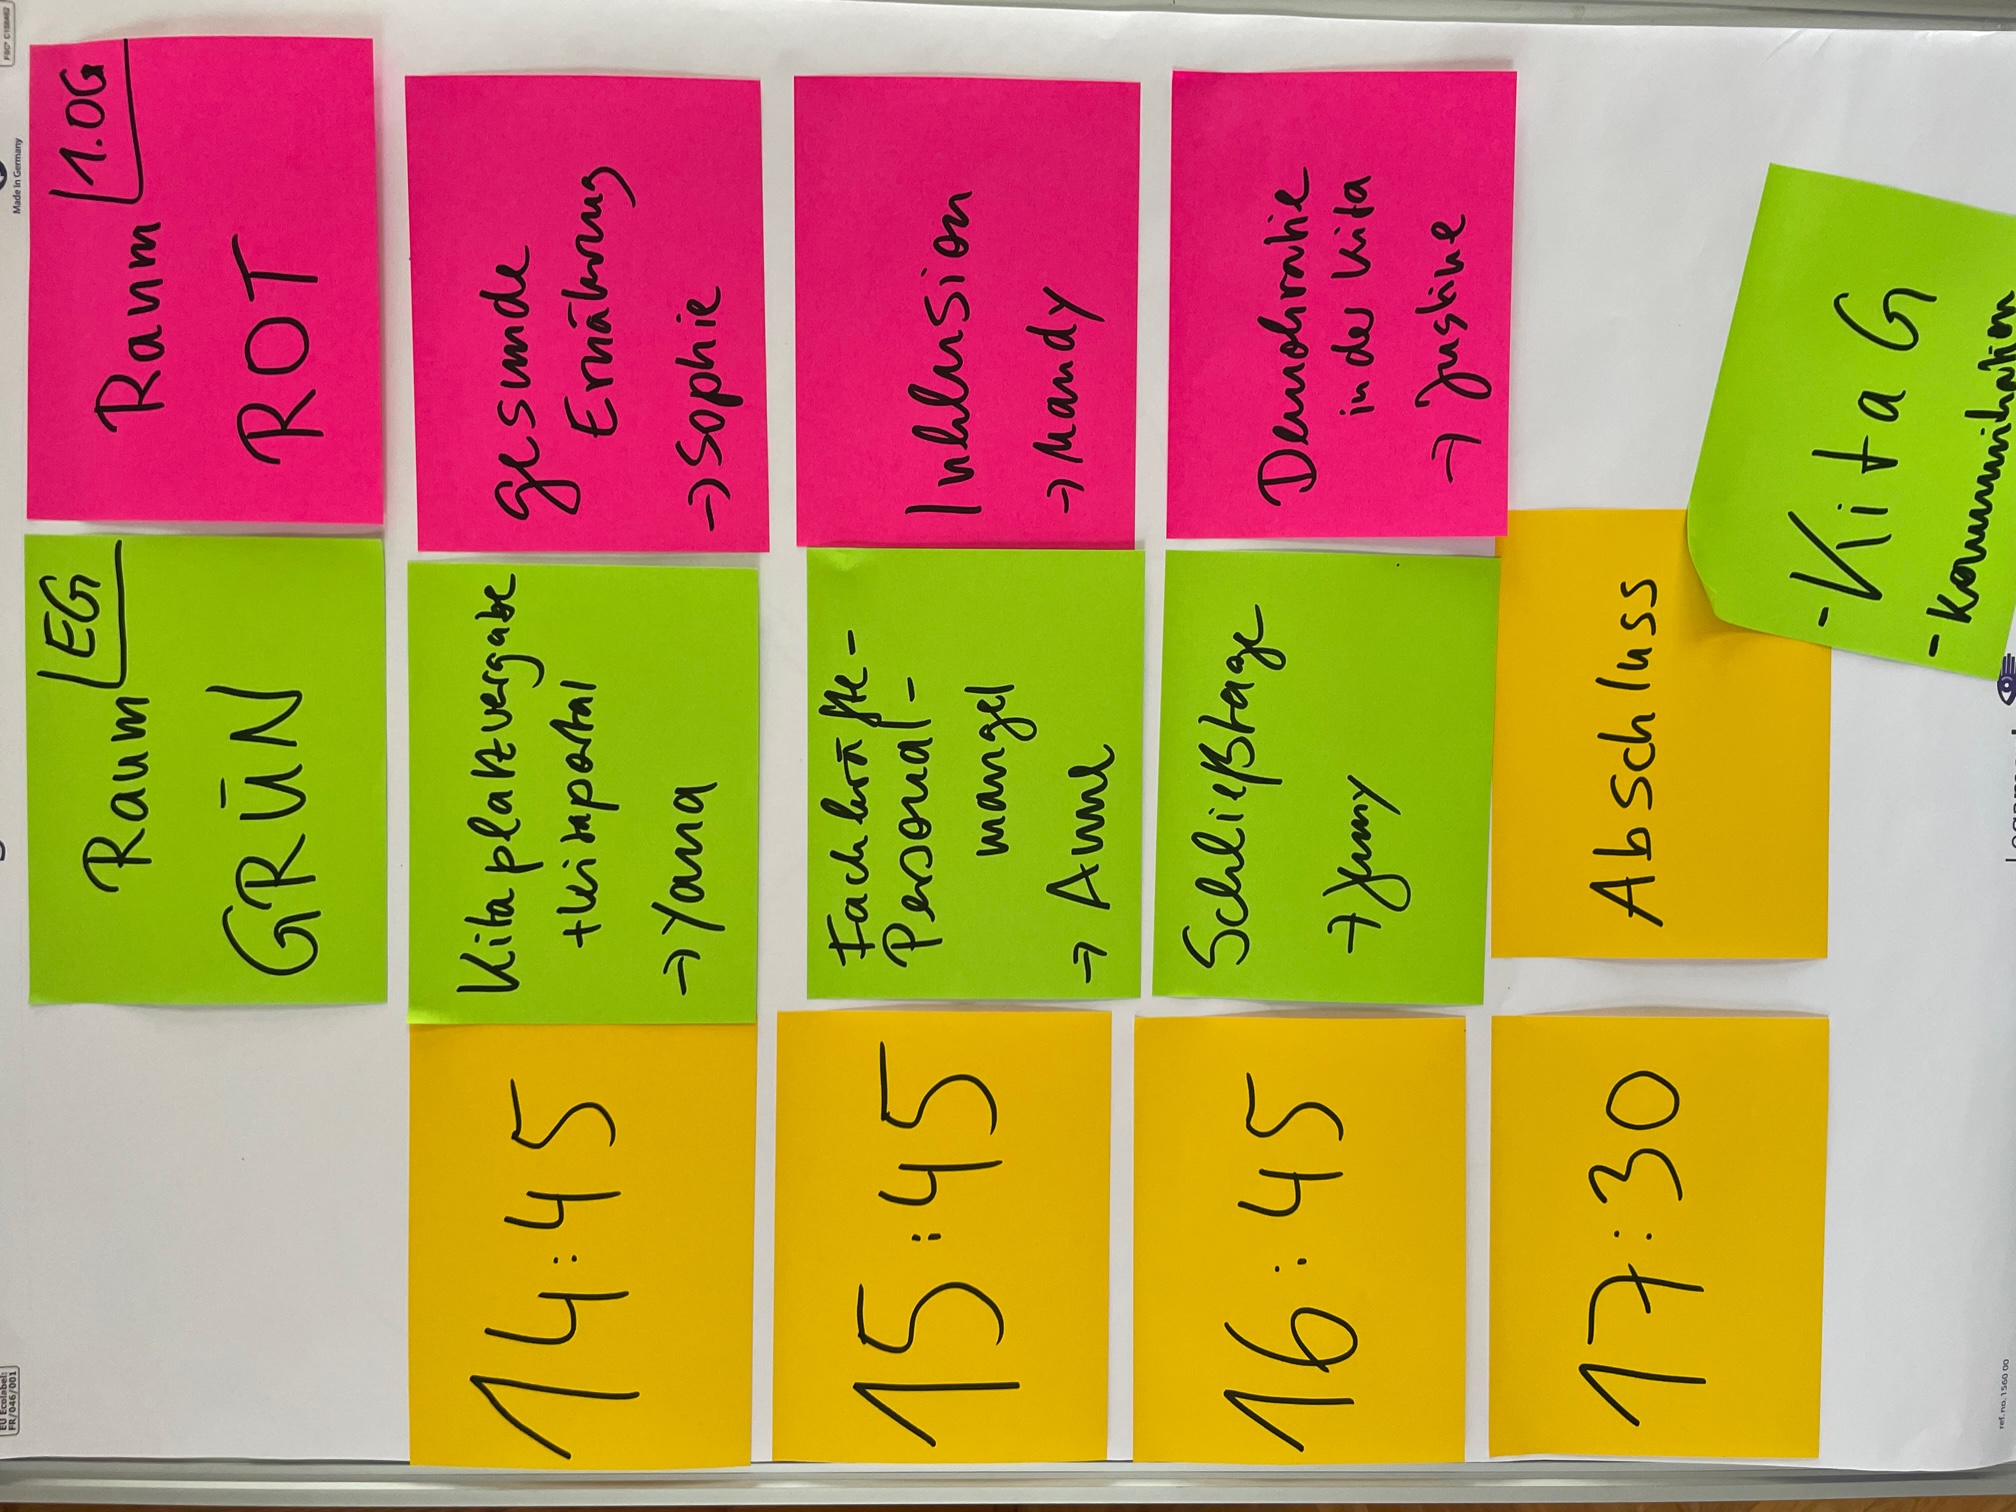 Raum EG
GRÜN
Raum 1.OG
ROT
14:45
Kitaplatzvergabe
+ Kitaportal
→ Yana
gesunde
Ernährung
→ Sophie
15:45
Fachkräfte-
Personal-
mangel
→ Anne
Inklusion
→ Mandy
16:45
Schließtage
→ Jenny
Demokratie
in der Kita
→ Justine
17:30
Abschluss
- KitaG
- Kommunikation
Made in Germany
EU Ecolabel:
FR/046/001
ref.no. 1560 00